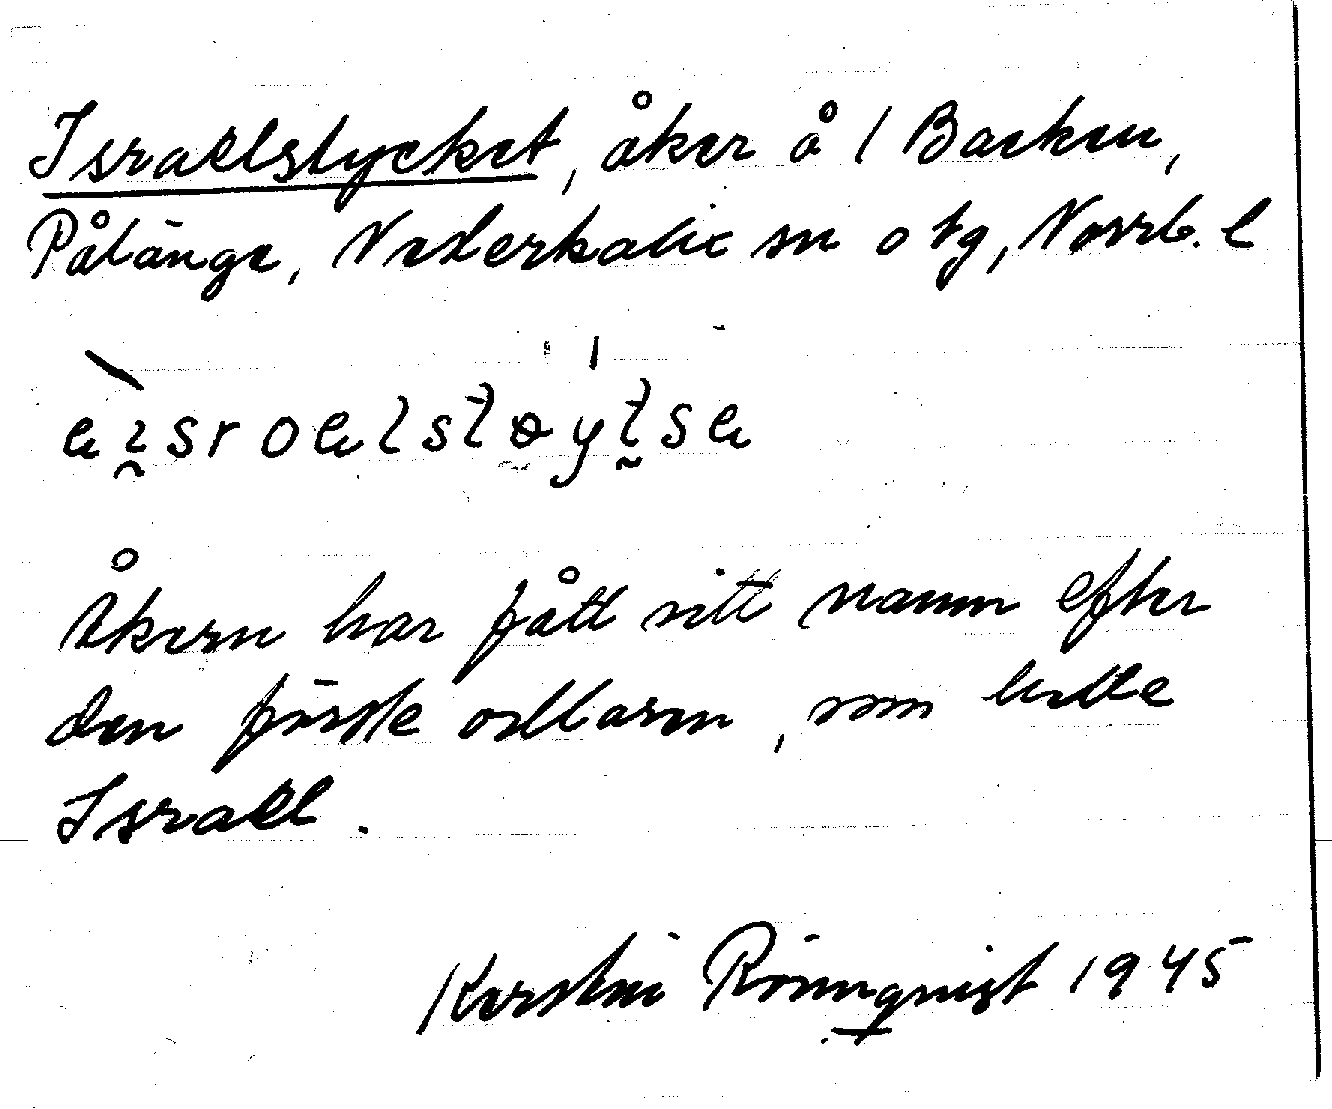 Israelstycket, åker å 1 Backen,
Pålänge, Nederkalix sn o tg, Norrb. l
Åkern har fått sitt namn efter
den förste odlaren, som hette
Israel.
Kerstin Rönnqvist 1945